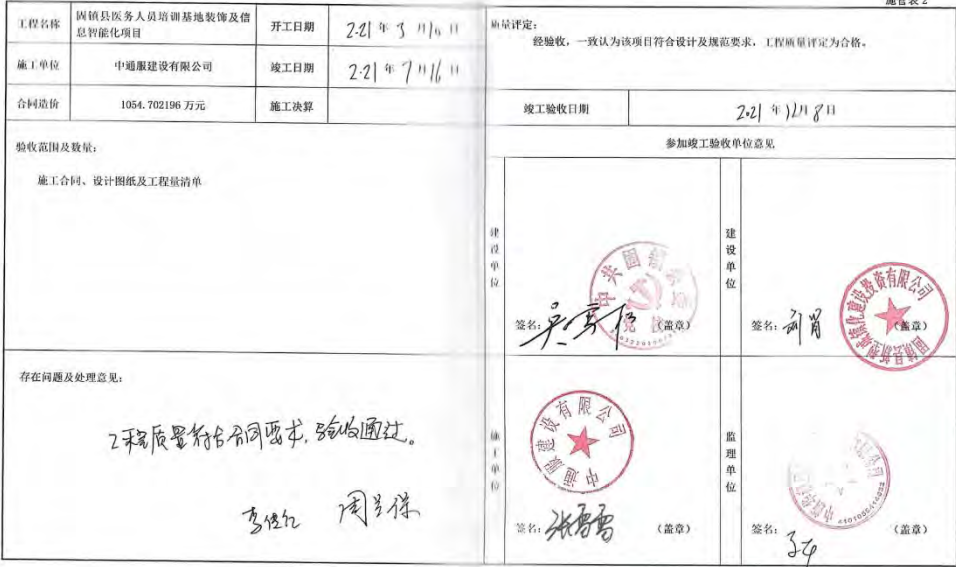 施管表 2
工程名称
固镇县医务人员培训基地装饰及信
息智能化项目
开工日期
2021年3月16日
施工单位
中通服建设有限公司
竣工日期
2021年7月16日
合同造价
1054.702196 万元
施工决算
验收范围及数量:
施工合同、设计图纸及工程量清单
存在问题及处理意见:
工程质量符合合同要求,验收通过。
周兰保
质量评定:
经验收,一致认为该项目符合设计及规范要求,工程质量评定为合格。
竣工验收日期
2021年12月8日
参加竣工验收单位意见
建设单位
中共固镇县委
党校
签名:
(盖章)
建设单位
固镇县新型城镇化建设投资有限公司
签名:
(盖章)
施工单位
中通服建设有限公司
签名:张雷雷
(盖章)
监理单位
签名:
(盖章)